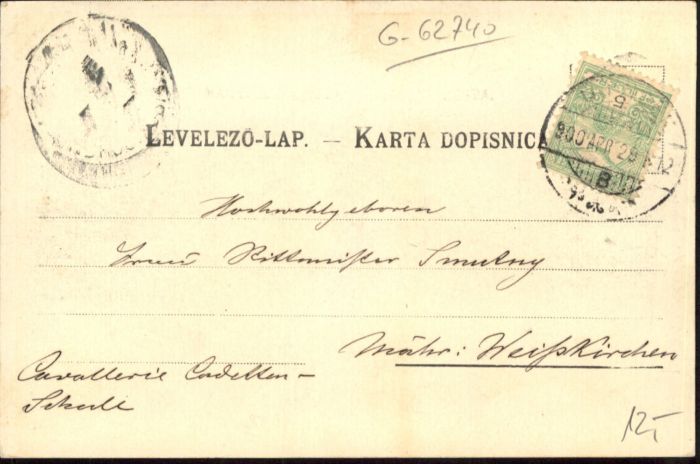 G-62740
LEVELEZŐ-LAP. – KARTA DOPISNICA
5
900 APR 2
Hochwohlgeboren
Frau Rittmeister Smutny
Mähr: Weißkirchen
Cavallerie Cadetten-
Schule
12,-